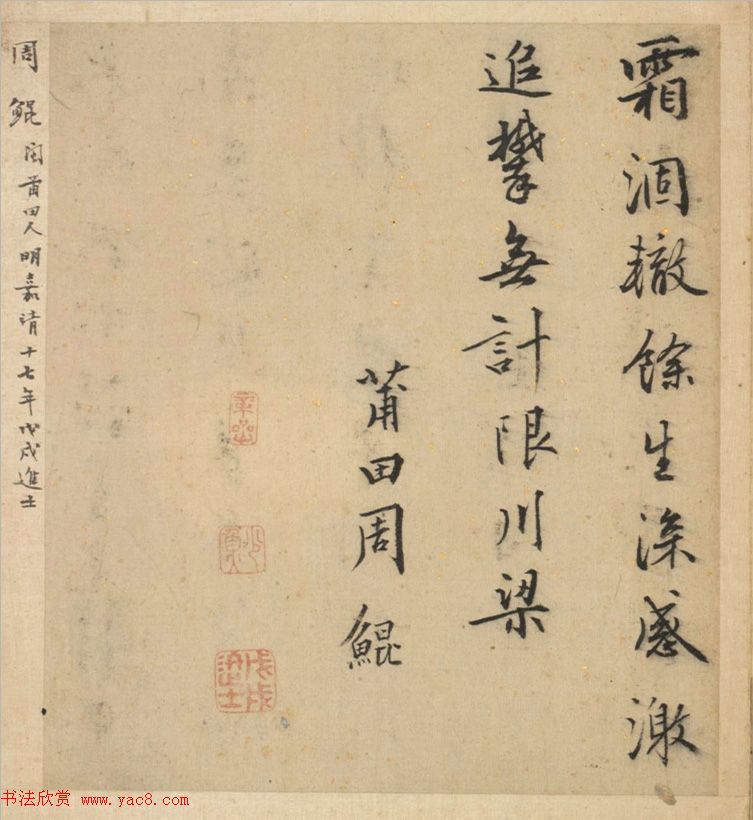 霜涸轍餘生深感激
追攀無計限川梁
莆田周鯤
戊戌進士
周鯤 闽莆田人明嘉清十七年戊戌進士
书法欣赏 www.yac8.com